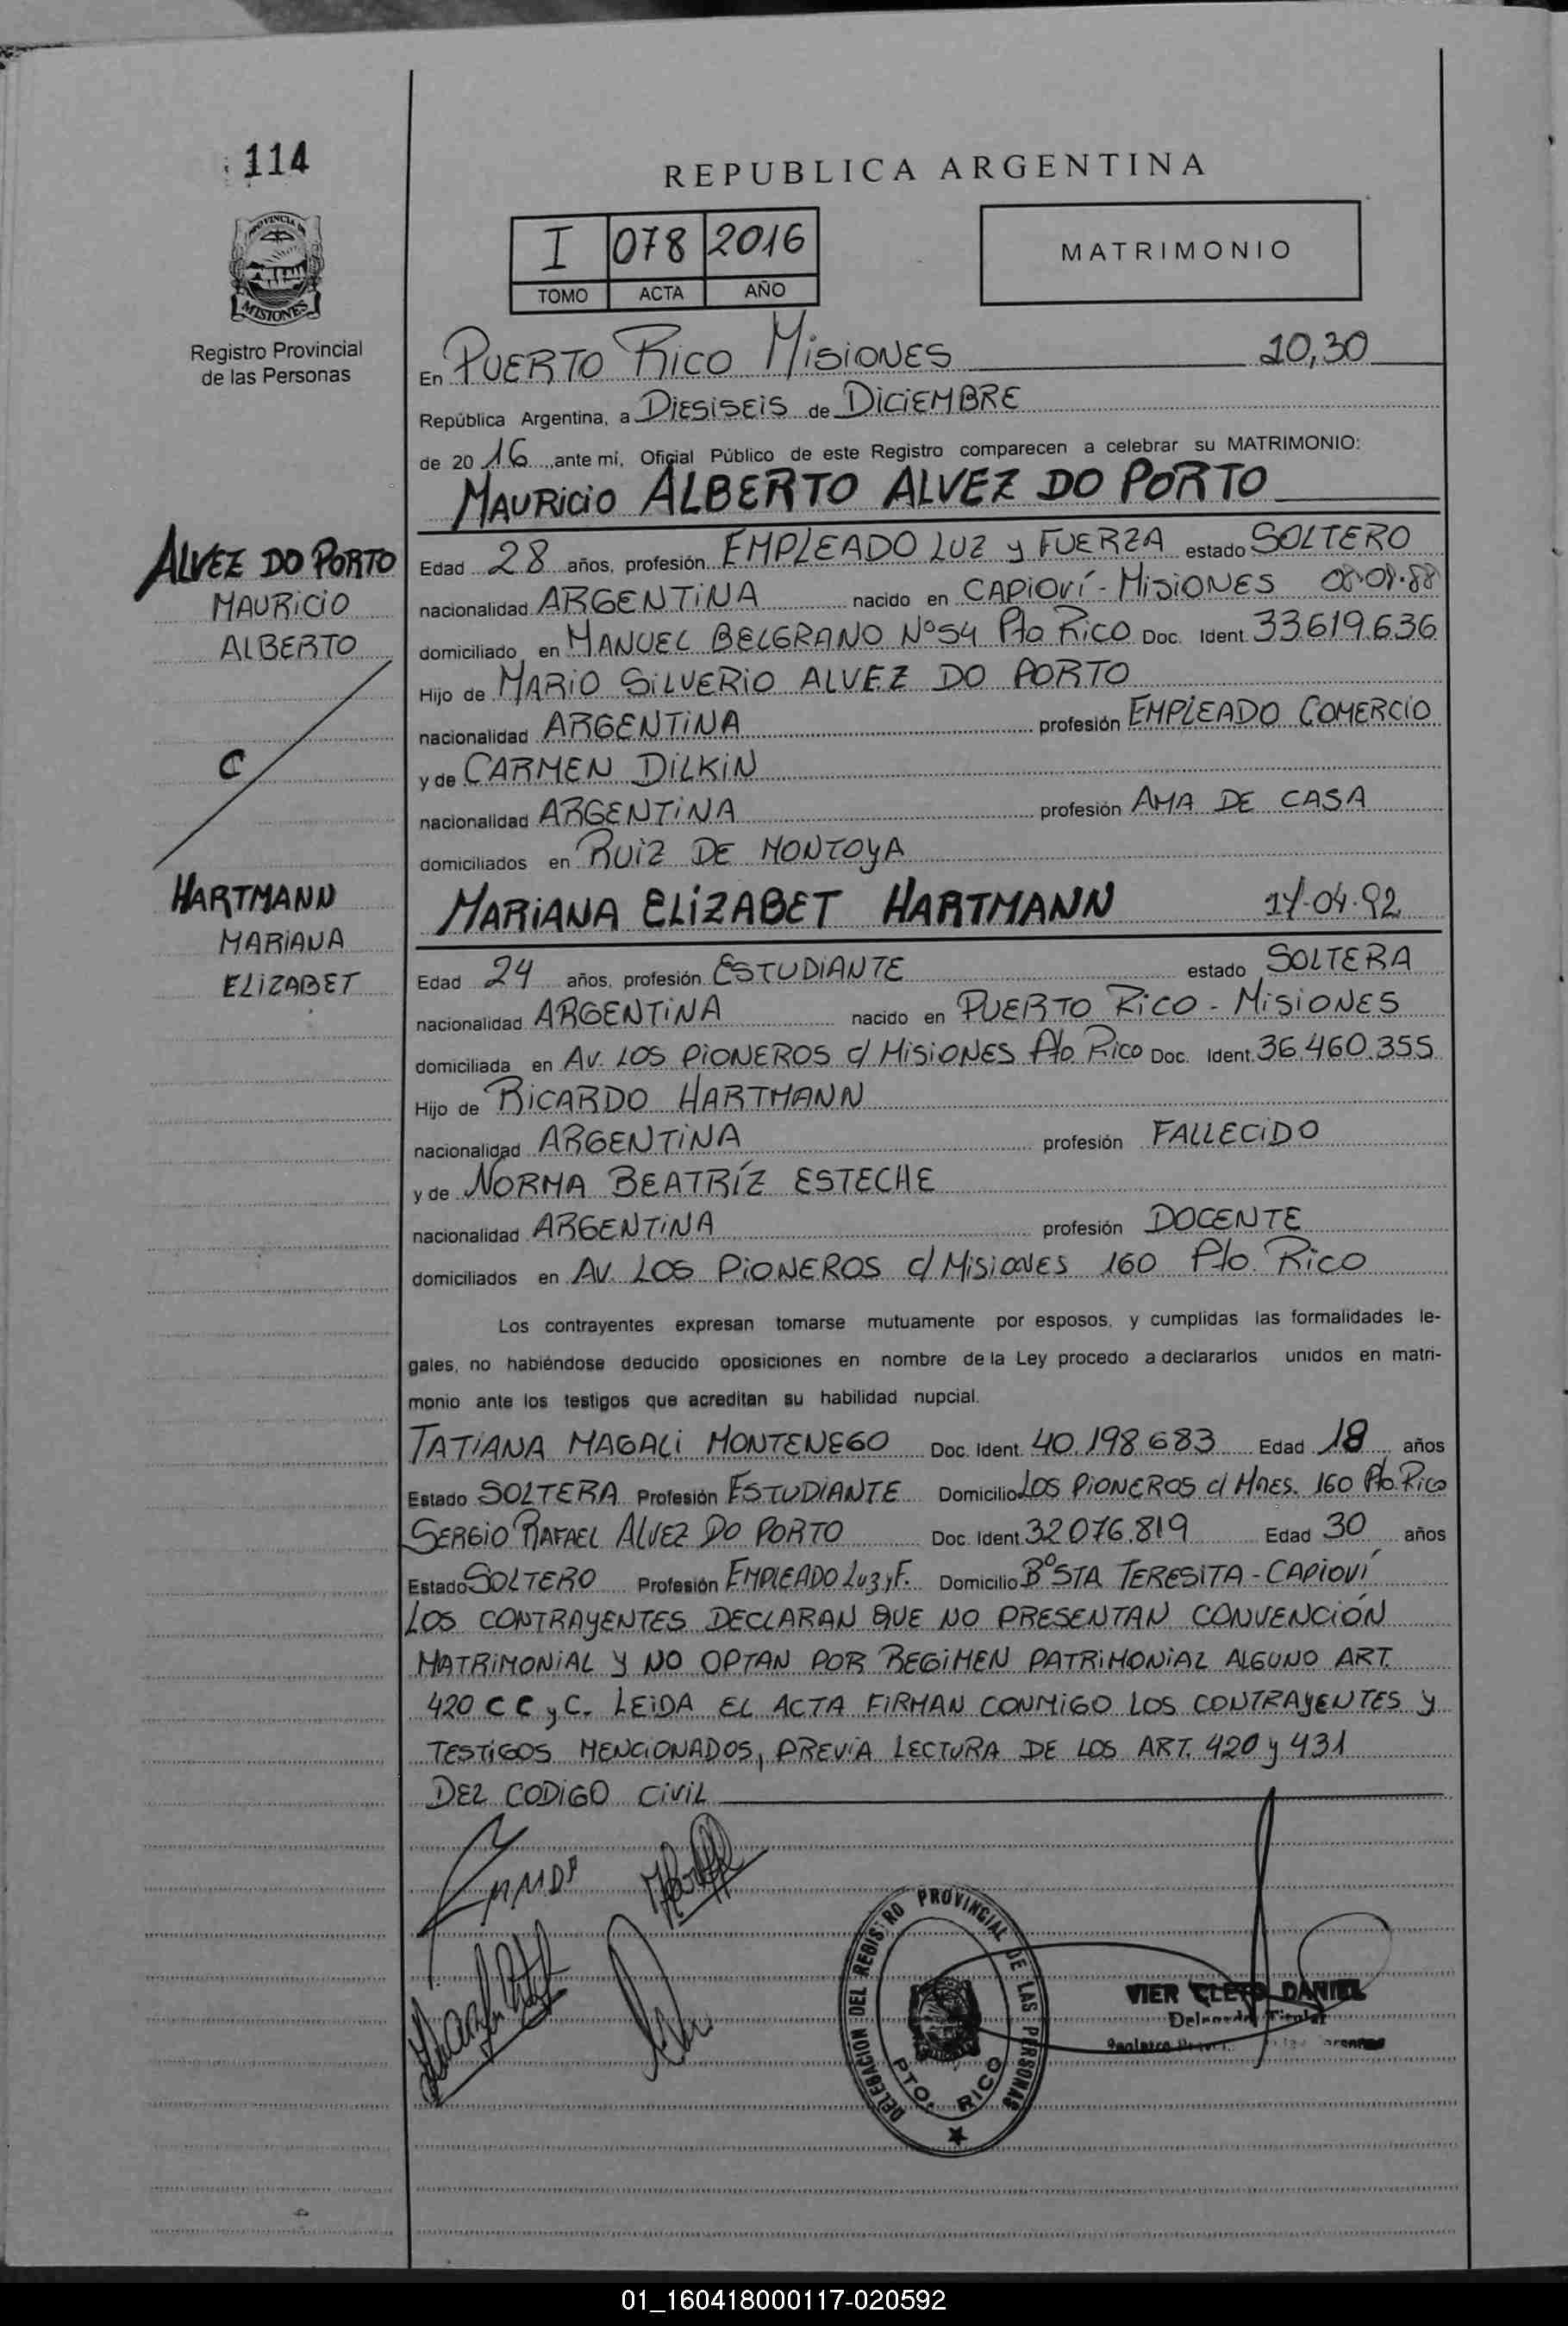 114
REPUBLICA ARGENTINA
PROVINCIA DE
MISIONES
Registro Provincial
de las Personas
I 078 2016
TOMO ACTA AÑO
MATRIMONIO
En PUERTO RICO MISIONES 10,30
República Argentina, a DIESISEIS de DICIEMBRE
de 20 16 ante mí, Oficial Público de este Registro comparecen a celebrar su MATRIMONIO:
MAURICIO ALBERTO ALVEZ DO PORTO
ALVEZ DO PORTO
MAURICIO
ALBERTO
C
Edad 28 años, profesión EMPLEADO LUZ y FUERZA estado SOLTERO
nacionalidad ARGENTINA nacido en CAPIOVÍ - MISIONES
domiciliado en MANUEL BELGRANO Nº54 Pto RICO Doc. Ident. 33619.636
Hijo de MARIO SILVERIO ALVEZ DO PORTO
nacionalidad ARGENTINA profesión EMPLEADO COMERCIO
y de CARMEN DILKIN
nacionalidad ARGENTINA profesión AMA DE CASA
domiciliados en RUIZ DE MONTOYA
HARTMANN
MARIANA
ELIZABET
MARIANA ELIZABET HARTMANN
Edad 24 años, profesión ESTUDIANTE estado SOLTERA
nacionalidad ARGENTINA nacido en PUERTO RICO - MISIONES
domiciliada en AV. LOS PIONEROS c/ MISIONES Pto. RICO Doc. Ident. 36.460.355
Hijo de RICARDO HARTMANN
nacionalidad ARGENTINA profesión FALLECIDO
y de NORMA BEATRÍZ ESTECHE
nacionalidad ARGENTINA profesión DOCENTE
domiciliados en AV. LOS PIONEROS c/ MISIONES 160 Pto. RICO
Los contrayentes expresan tomarse mutuamente por esposos, y cumplidas las formalidades le-
gales, no habiéndose deducido oposiciones en nombre de la Ley procedo a declararlos unidos en matri-
monio ante los testigos que acreditan su habilidad nupcial.
TATIANA MAGALI MONTENEGO Doc. Ident. 40.198.683 Edad 18 años
Estado SOLTERA Profesión ESTUDIANTE Domicilio LOS PIONEROS c/ Mnes. 160 Pto. RICO
SERGIO RAFAEL ALVEZ DO PORTO Doc. Ident. 32076.819 Edad 30 años
Estado SOLTERO Profesión EMPLEADO LUZ y F. Domicilio Bº STA TERESITA - CAPIOVÍ
LOS CONTRAYENTES DECLARAN QUE NO PRESENTAN CONVENCIÓN
MATRIMONIAL Y NO OPTAN POR REGIMEN PATRIMONIAL ALGUNO ART.
420 C C y C. LEIDA EL ACTA FIRMAN CONMIGO LOS CONTRAYENTES y
TESTIGOS MENCIONADOS, PREVIA LECTURA DE LOS ART. 420 y 431
DEL CODIGO CIVIL
DELEGACION DEL REGISTRO PROVINCIAL DE LAS PERSONAS
PTO. RICO
VIER CLETO DANIEL
Delegado Titular
01_160418000117-020592